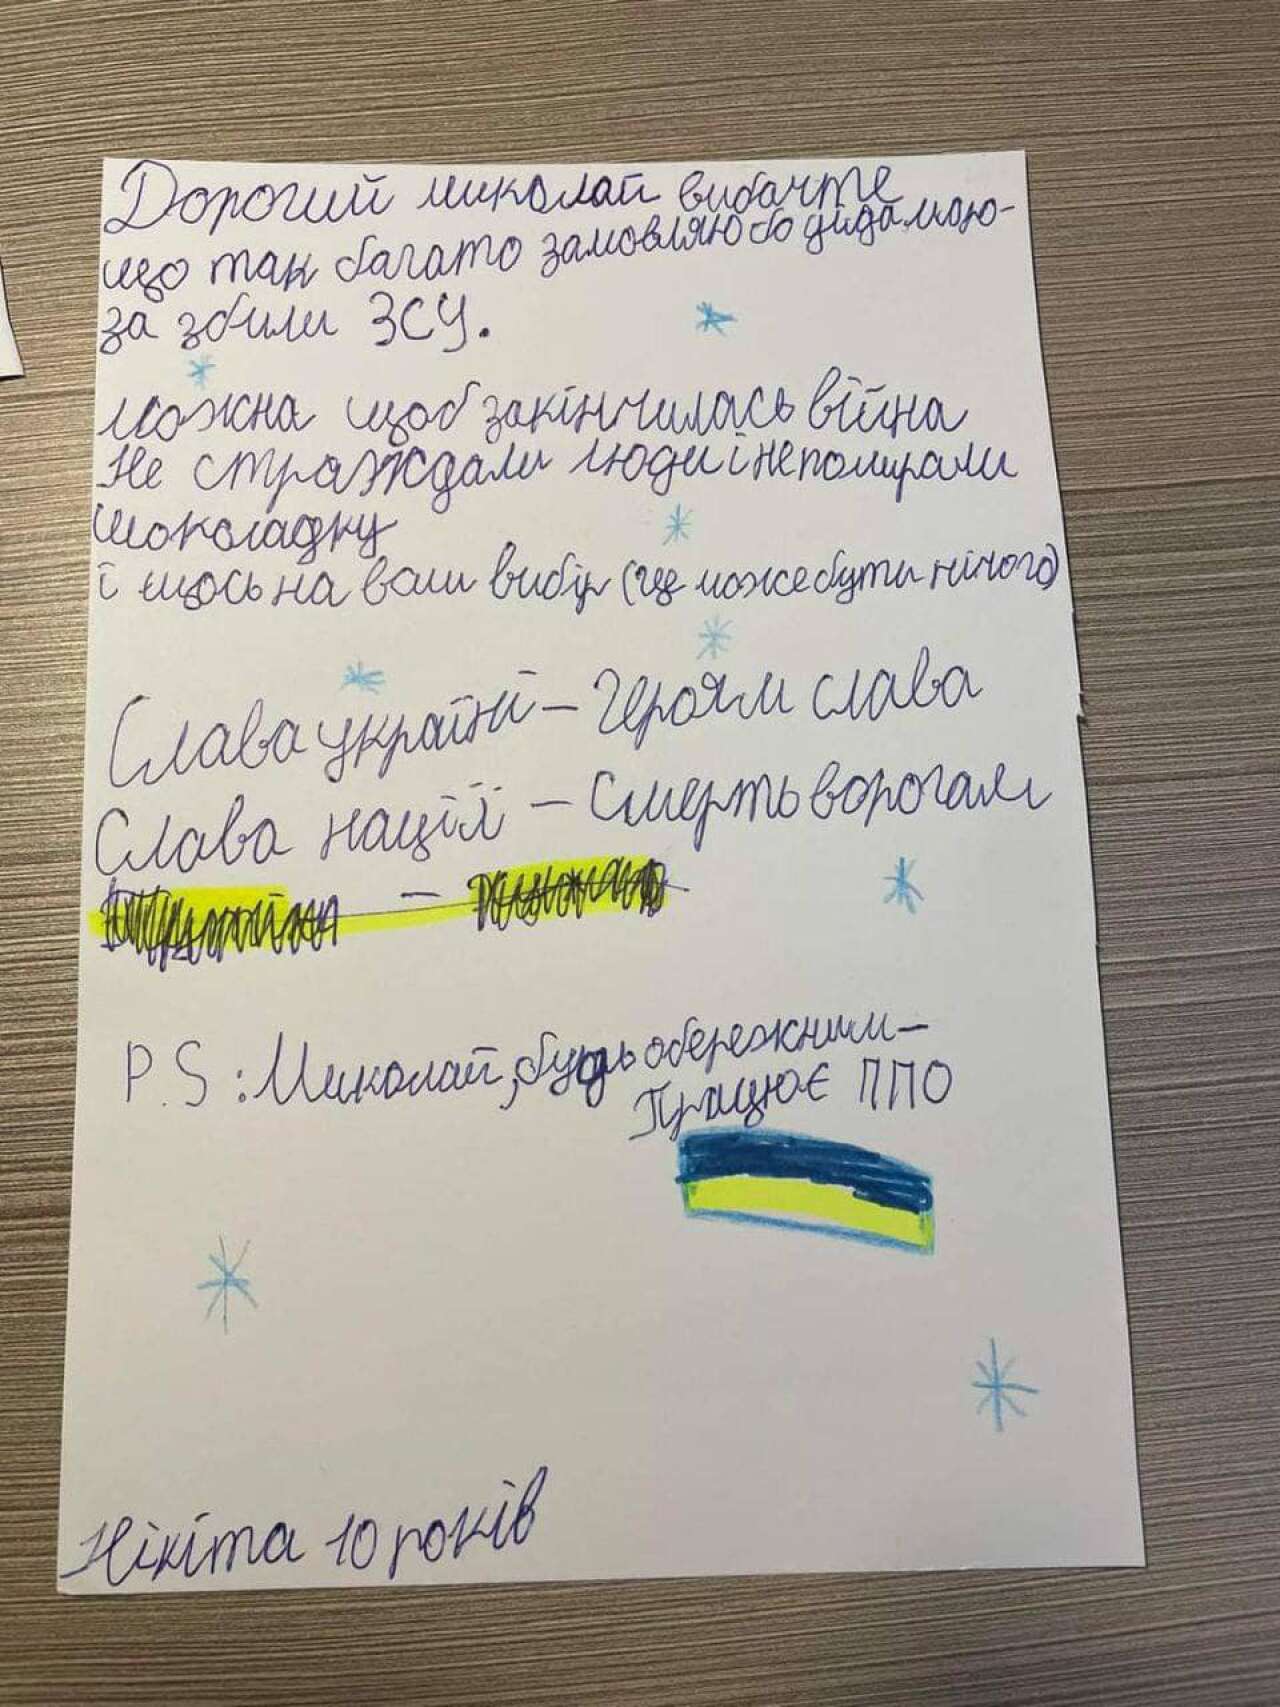 Дорогий миколай вибачте
що так багато замовляю бо дида мою-
за збили ЗСУ.
можна щоб закінчилась війна
не страждали люди і непомирали
шоколадку
і щось на ваш вибір (це може бути нічого)
Слава україні – героям слава
Слава нації – Смерть ворогам
P.S: Миколай, будь обережним –
Працює ППО
Нікіта 10 років